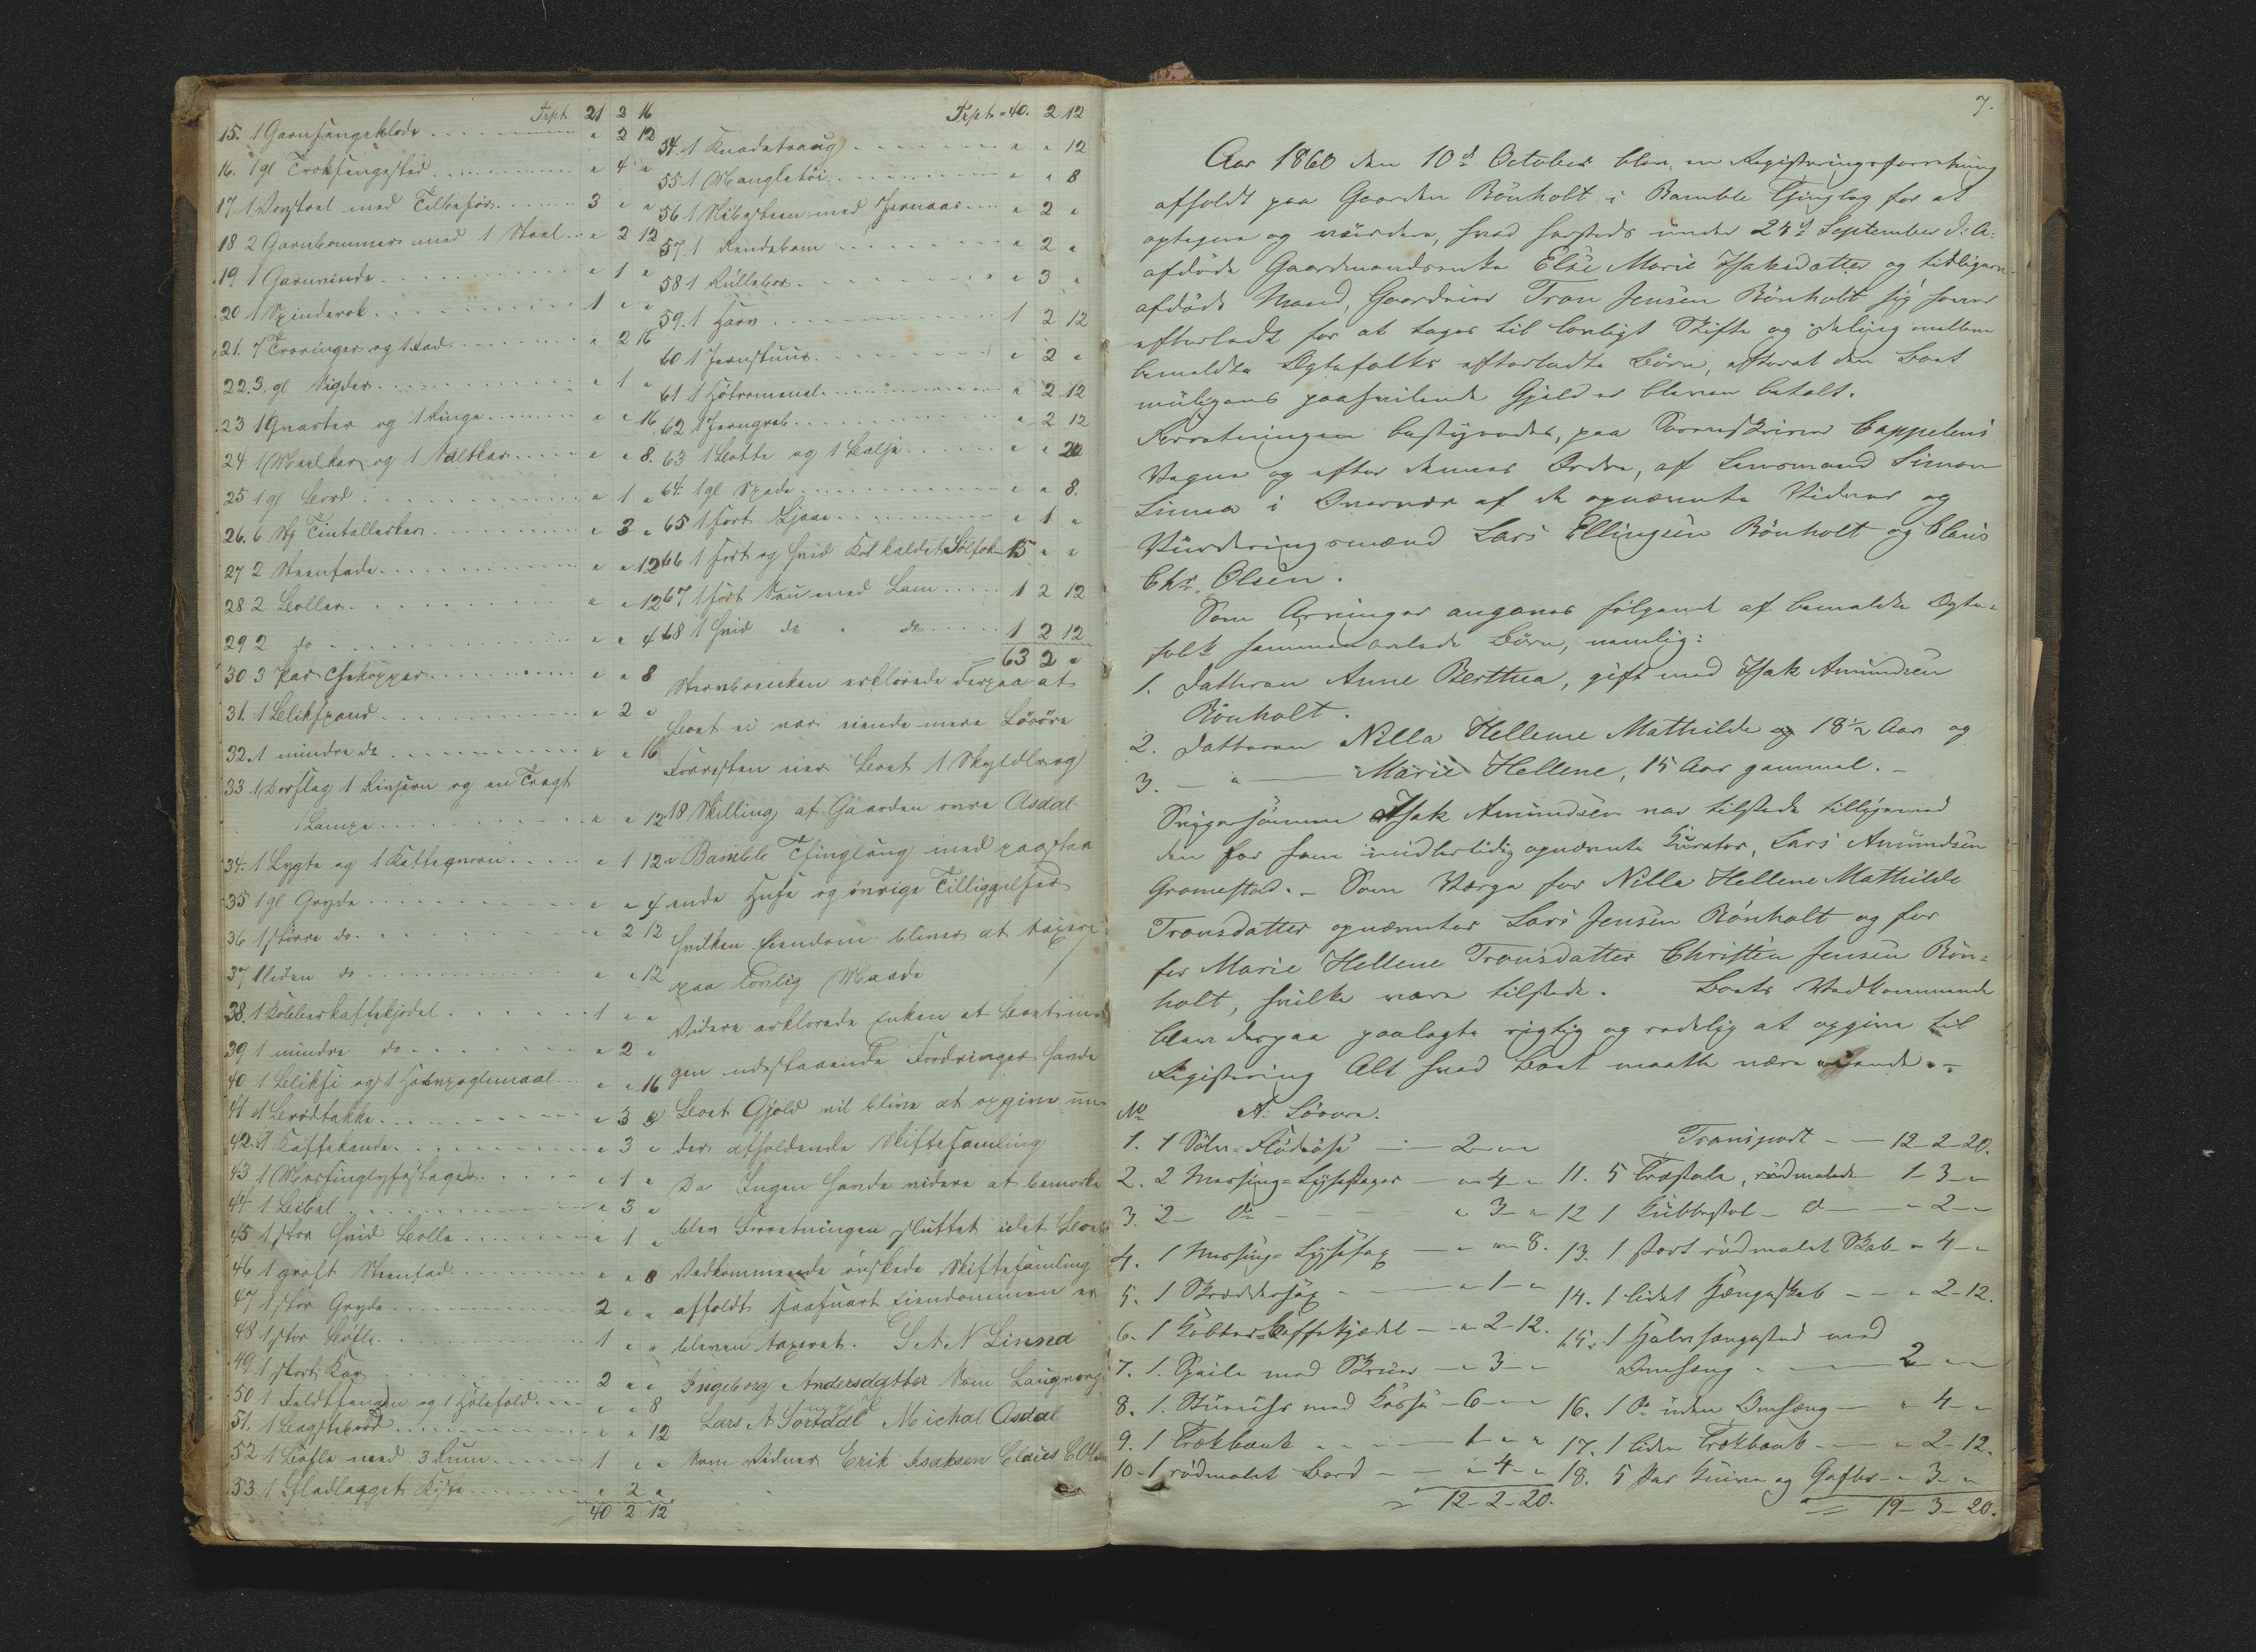 Trpt 21 2 16
15. 1 Garnhængeklode " 2 12
16. 1 gl Træksengested " 4 "
17 1 Vævstoel med Tilbehør 3 " "
18 2 Garnbommer med 1 Stoel " 2 12
19 1 Garnvinde " 1 "
20 1 Spinderok 1 " "
21. 7 Træringer og 1 Fad " 2 16
22. 3. gl Bigder " 1 "
23 1 Qvarter og 1 Ringe " " 16
24 1 Meelkar og 1 Saltkar " " 8.
25 1 gl Bord " 1 "
26. 6 St Tintallerker " 3 "
27 2 Steenfade " " 12
28 2 Boller " " 12
29 2 do " " 4
30 3 Par Thekopper " " 8
31. 1 Blikspand " 2 "
32. 1 mindre do " " 16
33 1 Dorslag 1 Rivjern og en Tragt
1 Lampe " " 12
34. 1 Lygte og 1 Kaffeqværn " 1 12
35 1 gl Gryde " " 4
36 1 større do " 2 12
37 1 liden do " " 12
38. 1 Kobberkaffekjedel 1 " "
39 1 mindre do " 2 "
40 1 Bliksi og 1 Halvpoglemaal " " 16
41 1 Brødtakke " 3
42. 1 Kaffekande " 3 "
43 1 Messinglysestager " 1 "
44 1 Bibel " 3 "
45 1 stor hvid Bolle " 1 "
46 1 groft Steenfad " " 8
47 1 stor Gryde 2 " "
48 1 stor Bøtte 1 " "
49 1 stort Kar 2 " "
50 1 og 1 " " 8
51. 1 Bagstebord " " 12
52 1 Bøtte med 3 Rum 1 " "
53 1 Fladlagget Kiste " 2 "
40 2 12
Trpt " 40. 2 12
54. 1 Knadetraug " " 12
55 1 Mangletøi " " 8
56 1 Slibesteen med Jernaas " 2 "
57. 1 Rendebom " 2 "
58 1 Rullebør " 3 "
59. 1 Harv 1 2 12
60 1 Jernstuur " 2 "
61 1 Høtromenal " 2 12
62 1 Jerngreb " 2 12
63 1 Bøtte og 1 Balje " " 20
64. 1 gl Spade " " 8.
65 1 sort Gjæs " 1 "
66 1 sort og hvid Ko kaldet Sølfok 15 " "
67 1 sort Sau med Lam 1 2 12
68 1 hvid do " do 1 2 12
63 2 "
Stervboenken erklærede derpaa at
Boet ei var eiende mere Løsøre
Forresten eier Boet 1 Skylddlr og
18 Skilling af Gaarden øvre Asdal
i Bamble Thinglaug med paastaa
ende Huse og øvrige Tilliggelser
hvilken Eiendom bliver at taxere
paa lovlig Maade
Videre erklærede Enken at Boet in
gen udestaaende Fordringer havde
Boet Gjeld vil blive at opgive un-
der afholdende Skiftesamling
Da Ingen havde videre at bemærke
blev Forretningen sluttet idet Boets
Vedkommende ønskede Skiftesamling
afholdt saasnart Eiendommen er
bleven taxeret. S A N Linnd
Ingeborg Andersdatter Som Laugværge
Lars A Sortdal Michal Asdal
Som Vidner Erik Isaksen Claus C Olsen
7.
Aar 1860 den 10d October blev en Registreringsforretning
afholdt paa Gaarden Rönholt i Bamble Thinglag for at
optegne og vurdere, hvad havsteds under 24d September d: A:
afdöde Gaardmandsenke Else Marie Isaksdatter og tidligere-
afdöde Mand, Gaardeier Tron Jensen Rönholt sig haver
efterladt for at tages til lovligt Skifte og deling mellem
bemeldte Egtefolks efterladte Börn, efterat den Boet
muligens paahvilende Gjeld er bleven betalt.
Forretningen bestyredes, paa Sorenskriver Cappelens
Vegne og efter dennes Ordre, af Lensmand Simon
Linna i Overvær af de opnævnte Vidner og
Vurderingsmænd Lars Ellingsen Rönholt og Claus
Chr. Olsen.
Som Arvinger angaves fölgende af bemeldte Egte-
folk sammenavlede Börn, nemlig:
1. datteren Anne Berthea, gift med Isak Amundsen
Rönholt.
2. datteren Nilla Hellene Mathilde 18½ Aar og
3. — " — Marie Hellene, 15 Aar gammel. -
Svigersönnen Isak Amundsen var tilstede tilligemed
den for ham midlertidig opnævnte Kurator, Lars Amundsen
Gromestad. - Som Værge for Nilla Hellene Mathilde
Tronsdatter opnævntes Lars Jensen Rönholt og for
for Marie Hellene Tronsdatter Christen Jensen Rön-
holt, hvilke vare tilstede. Boets Vedkommende
blev derpaa paalagte rigtig og redelig at opgive til
Registrering Alt hvad Boet maatte være eiende. -
No A: Lösöre.
1. 1 Sölv-Flödeöse — 2 " "
2. 2 Messing-Lysestager — " 4 "
3. 2 - do - " 3 "
4. 1 Messing-Lysesax — " " 8.
5. 1 Skreddersax - " 1 "
6. 1 Kobber-Kaffekjedel — " 2 - 12.
7. 1. Speile med Skruer — " 3 "
8. 1. Stueuhr med Kasse — 6 " "
9. 1 Trækbænk 1 " "
10. 1 rödmalet Bord — " 4 "
12 - 2 - 20.
Transport — 12 - 2 - 20.
11. 5 Træstole, rödmalede 1 - 3 - "
12 1 Kubbestol - do — " 2 "
13. 1 stort rödmalet Skab - " 4 "
14. 1 lidet Hængeskab — " 2 - 12.
15. 1 Halvsengested med
Omhæng 2 " "
16. 1 do uden Omhæng — " 4 "
17. 1 liden Trækbænk — " 2 - 12.
18. 5 Par Knive og Gafler " 3 "
19 - 3 - 20.